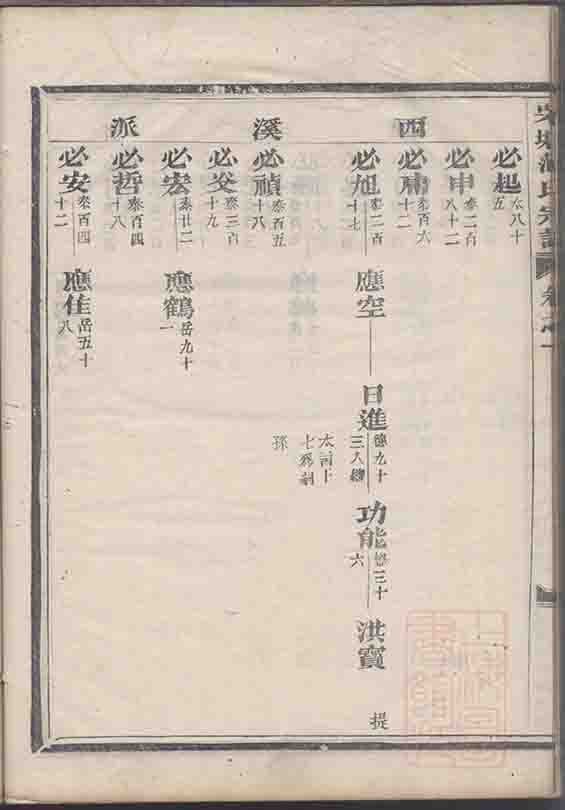 西 溪 派
必起 太八十五
必申 泰二百八十二
必肅 泰百六十二
必旭 泰二百十七 應空 日進 德九十三入繼太詞十七為嗣孫 功能 三十六 洪寶 提
必禎 泰百五十八
必交 泰三百十九
必宏 泰廿二 應鶴 岳九十一
必哲 泰百四十八
必安 泰百四十二 應佳 岳五十八